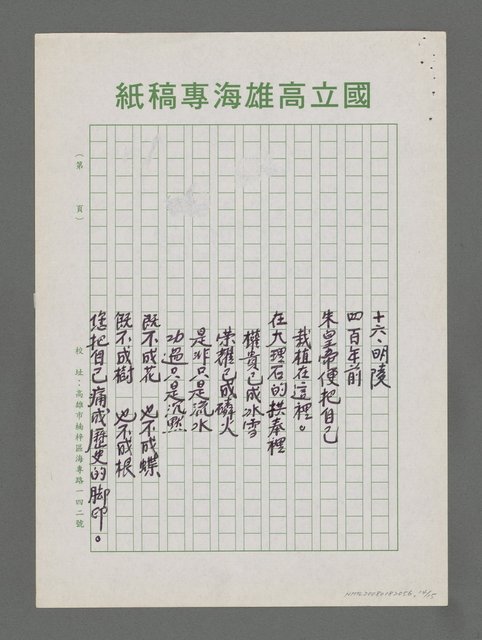 國立高雄海專稿紙
十六、明陵
四百年前
朱皇帝便把自己
栽植在這裡。
在大理石的拱奉裡
權貴已成冰雪
榮耀已成磷火
是非只是流水
功過只是沉默
既不成花 也不成蝶
既不成樹 也不成根
您把自己痛成歷史的脚印。
(第 頁)
校 址:高雄市楠梓區海專路一四二號
NMTL20080182056, 14/15